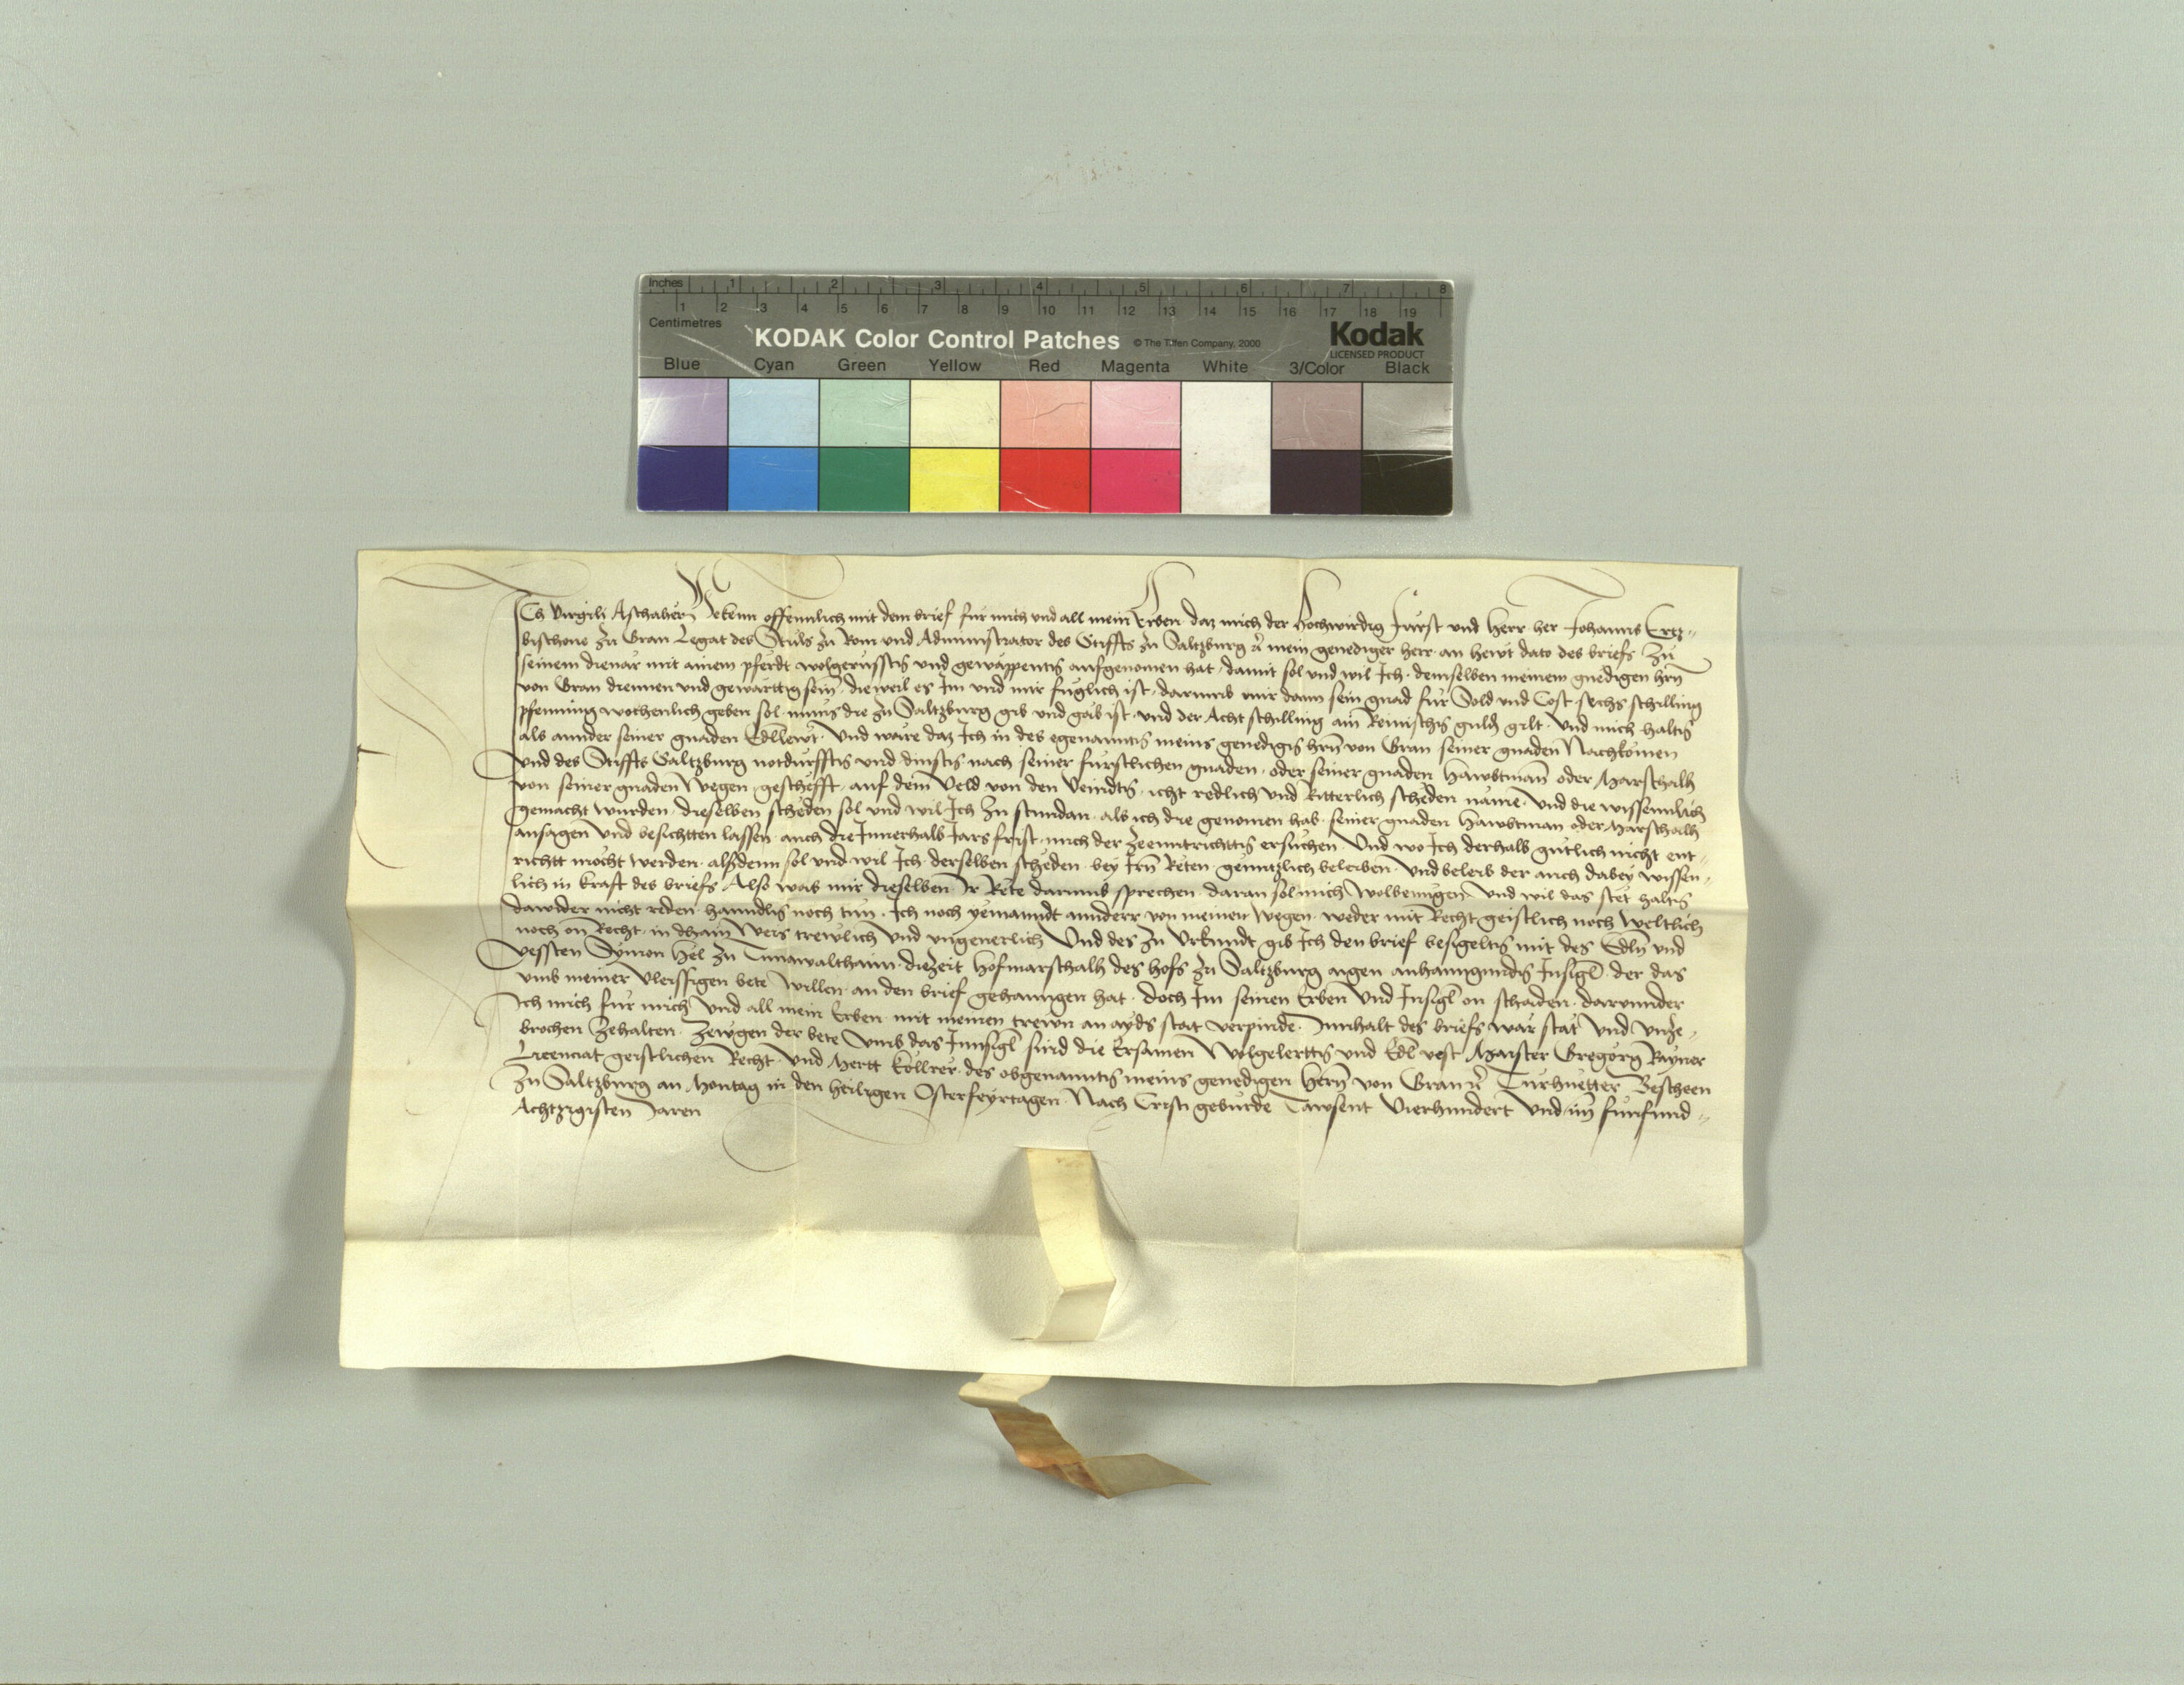 Inches 1 2 3 4 5 6 7 8
1 2 3 4 5 6 7 8 9 10 11 12 13 14 15 16 17 18 19
Centimetres
KODAK Color Control Patches © The Tiffen Company, 2000 Kodak
LICENSED PRODUCT
Blue Cyan Green Yellow Red Magenta White 3/Color Black
Ich Virgili Aschaher Bekenn offennlich mit dem brief für mich und all mein Erben daz mich der Hochwirdig Fürst und herr her Johanns Ertz-
bischove zu Gran Legat des Stuls zu Rom und Administrator des Stiffts zu Saltzburg mein genediger herr an hewt dato des briefs zu
seinem diennar mit ainem pferdt wolgerusstn und gewappentn aufgenomen hat, damit sol und wil Ich demselben meinem gnedigen hrn
von Gran diennen und gewarttig sein, dieweil es Im und mir fuglich ist, darumb mir dann sein gnad für Sold und Cost sechs schilling
pfenning wochenlich geben sol munss die zu Saltzburg gib und gäb ist und der Acht schilling ain Reinischn guldn gilt und mich haltn
als annder seiner gnaden Edllewt. Und wäre daz Ich in des egenanntn meins genedign hrn von Gran seiner gnaden Nachkomen
und des Stiffts Saltzburg notdurfftn und dinstn nach seiner fürstlichen gnaden, oder seiner gnaden hawbtman oder Marschalh
von seiner gnaden wegen geschefft, auf dem Veld von den Veindtn icht redlich und Ritterlich scheden näme und die wissennlich
gemacht wurden, dieselben scheden sol und wil Ich zu stundan als ich die genomen hab seiner gnaden hawbtman oder Marschalh
ansagen und besichtten lassen, auch die Innerhalb Jars frist mich der zeenntrichttn ersuchen Und wo Ich derhalb gutlich nicht ent-
richtt möcht werden, alßdenn sol und wil Ich derselben scheden bey Irn Reten genntzlich beleiben und beleib der auch dabey wissen-
lich in kraft des briefs Also was mir dieselben Ir Rete darumb sprechen daran sol mich wolbenügen und wil das stet haltn
dawider nicht reden hanndln noch tun, Ich noch yemanndt annderr von meinen wegen weder mit Recht geistlich noch weltlich
noch on Recht, in dhain weis trewlich und ungeverlich Und des zu Urkundt gib Ich den brief besigeltn mit des Edln und
vessten Symon Hel zu Tunawalthaim, diezeit Hofmarschalh des hofs zu Saltzburg aigen anhanngundn Insigl, der das
umb meiner vleissigen bete willen an den brief gehanngen hat, doch Im seinen Erben und Insigl on schaden, darunnder
Ich mich für mich und all mein Erben mit meinen trewn an aydß stat verpinde. Innhalt des briefs war stät und unze-
brochen zehalten. Zewgen der bete umb das Innsigl sind die Ersamen wolgelerttn und Edl vest Maister Gregorg Rayner
Licenciat geistlichen Recht und Mertt Köllrer des obgenanntn meins genedigen herrn von Gran Turhuetter Bescheen
zu Saltzburg an Montag in den heiligen Osterfeyrtagen Nach Cristi geburde Tawsent Vierhundert und im fünfund-
Achtzigisten Jaren